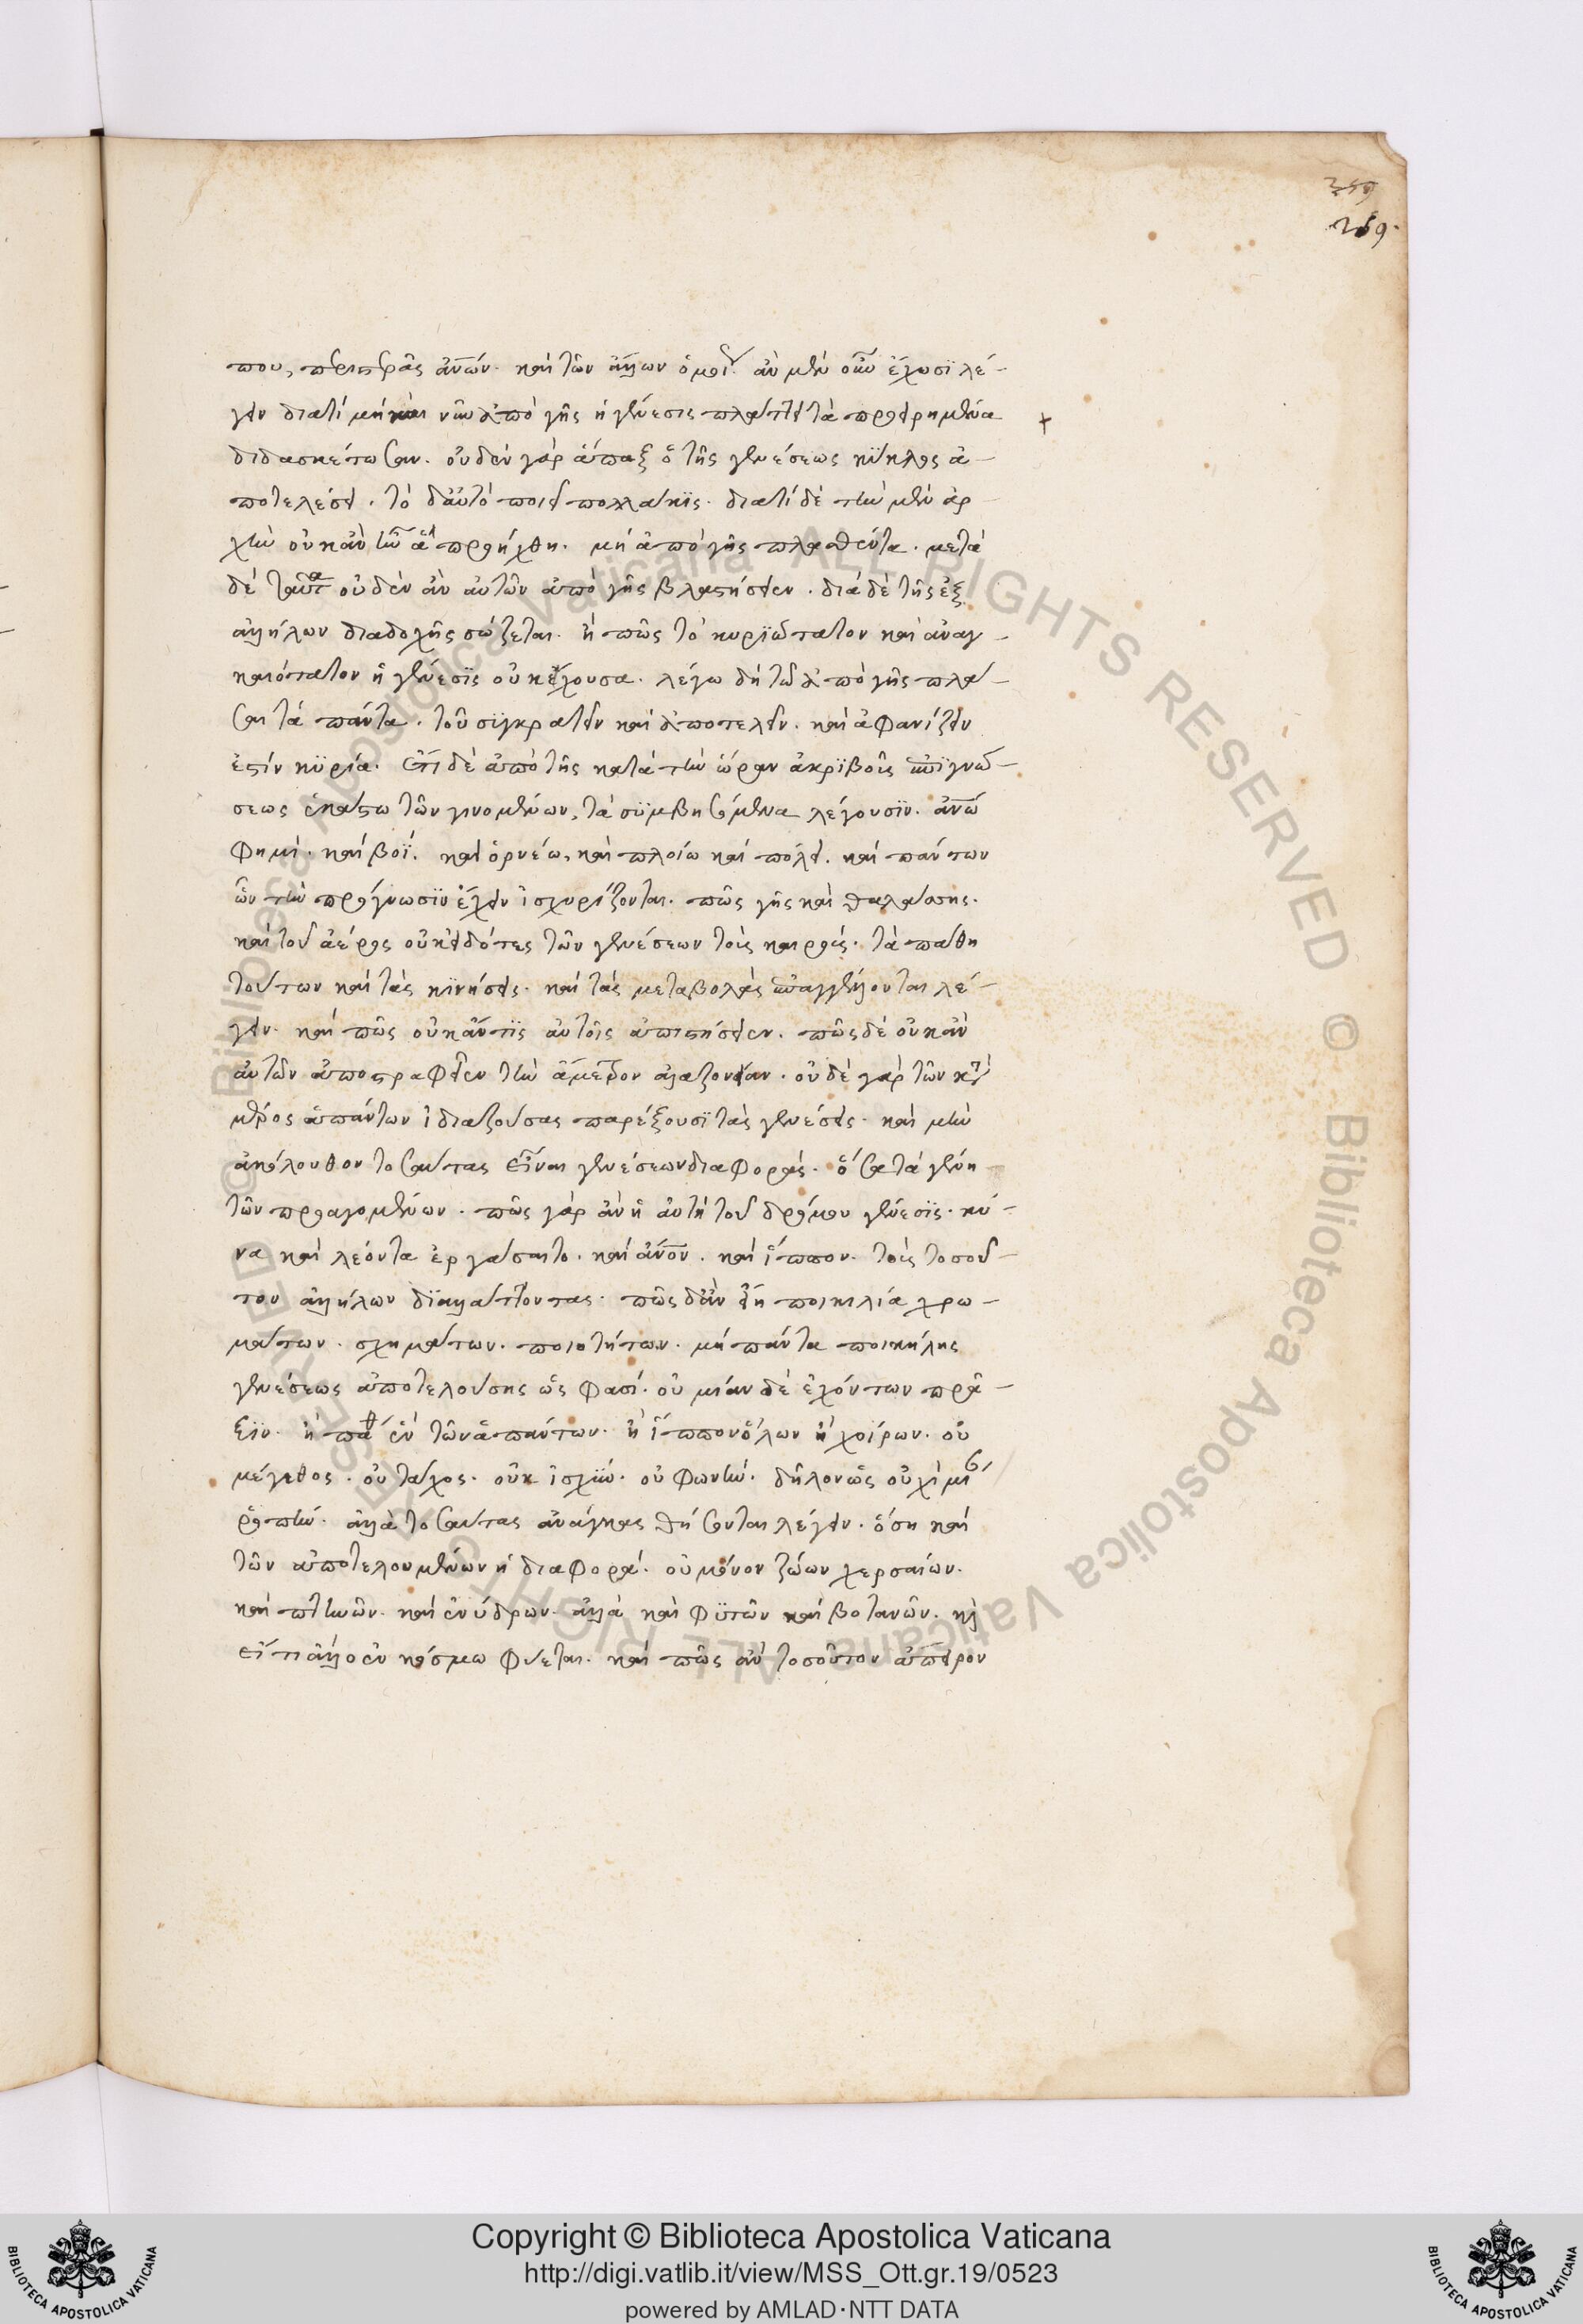 359
269.
που, περιπρᾶς ἀνών. καὶ τῶν ἄλλων ὁμοι. ἂν μὲν οὖν ἔχωσϊ λέ-
γειν διατί μὴ καὶ νῦν ἀπὸ γῆς ἡ γένεσις πλάττει τὰ προειρημένα
διδασκέτωσαν. οὐδὲν γὰρ ἅπαξ ὁ τῆς γενέσεως κύκλος ἀ-
ποτελέσει. τὸ δ'αὐτὸ ποιεῖ πολλακϊς. διατί δὲ τὴν μὲν ἀρ-
χὴν οὐκ ἂν προήχθη. μὴ ἀπὸ γῆς πλασθέντα. μετὰ
δὲ ταῦτα οὐδὲν ἂν αὐτῶν ἀπὸ γῆς βλαστήσειεν. διὰ δὲ τῆς ἐξ
ἀλλήλων διαδοχῆς σώζεται. ἢ πῶς τὸ κυρϊώτατον καὶ ἀναγ-
καιότατον ἡ γένεσϊς οὐκ ἔχουσα. λέγω δὴ τὸ ἀπὸ γῆς πλά-
σαι τὰ πάντα. τοῦ σϊγκρατεῖν καὶ ἀποτελεῖν. καὶ ἀφανίζειν
ἐστὶν κϋρία. ἔτι δὲ ἀπὸ τῆς κατὰ τὴν ὥραν ἀκρϊβοῦς ἐπϊγνώ-
σεως ἑκάστω τῶν γινομένων, τὰ σϋμβησόμενα λέγουσϊν. ἀνω
φημὶ. καὶ βοϊ. καὶ ὀρνέω, καὶ πλοίω καὶ πόλει. καὶ πάντων
ὧν τὴν πρόγνωσϊν ἔχειν ἰσχυρίζονται. πῶς γῆς καὶ θαλάσσης.
καὶ τοῦ ἀέρος οὐκ εἰδότες τῶν γενέσεων τοὺς καιροὺς. τὰ πάθη
τούτων καὶ τὰς κϊνήσεις. καὶ τὰς μεταβολὰς ἐπαγγέλλονται λέ-
γειν. καὶ πῶς οὐκ ἄν τϊς αὐτοῖς ἀπιστήσειεν. πῶς δὲ οὐκ ἂν
αὐτῶν ἀποστραφείεν τὴν ἄμετρον ἀλαζονείαν. οὐδὲ γὰρ τῶν κατὰ
μέρος ἁπάντων ἰδιαζούσας παρέξουσϊ τὰς γενέσεις. καὶ μὴν
ἀκόλουθον τοσαύτας εἶναι γενέσεων διαφορὰς. ὅσα τὰ γένη
τῶν προαγομένων. πῶς γὰρ ἂν ἡ αὐτὴ τοῦ δρόμου γένεσϊς. κύ-
να καὶ λέοντα ἐργάσαιτο. καὶ ἀνον. καὶ ἵππον. τοὺς τοσοῦ-
τον ἀλλήλων δϊαλλάττοντας. πῶς δ'ἂν εἴη ποικιλία χρω-
μάτων. σχημάτων. ποιοτήτων. μὴ πάντα ποικίλης
γενέσεως ἀποτελούσης ὥς φασί. οὐ μίαν δὲ ἐχόντων πρᾶ-
ξϊν. ἢ πάθ ἓν τῶν ἁπάντων. ἢ ἵππων ὅλων ἢ χοίρων. οὐ
μέγεθος. οὐ τάχος. οὐκ ἰσχϋν. οὐ φωνήν. δῆλον ὡς οὐχὶ μι
ῥοπήν. ἀλλὰ τοσαύτας ἀνάγκας θήσονται λέγειν. ὅση καὶ
τῶν ἀποτελουμένων ἡ διαφορά. οὐ μόνον ζώων χερσαίων.
καὶ πτηνῶν. καὶ ἐνύδρων. ἀλλὰ καὶ φϋτῶν καὶ βοτανῶν. καὶ
εἴ τι ἄλλο ἐν κόσμω φύεται. καὶ πῶς ἂν τοσοῦτον ἄπειρον
Copyright © Biblioteca Apostolica Vaticana
http://digi.vatlib.it/view/MSS_Ott.gr.19/0523
powered by AMLAD·NTT DATA